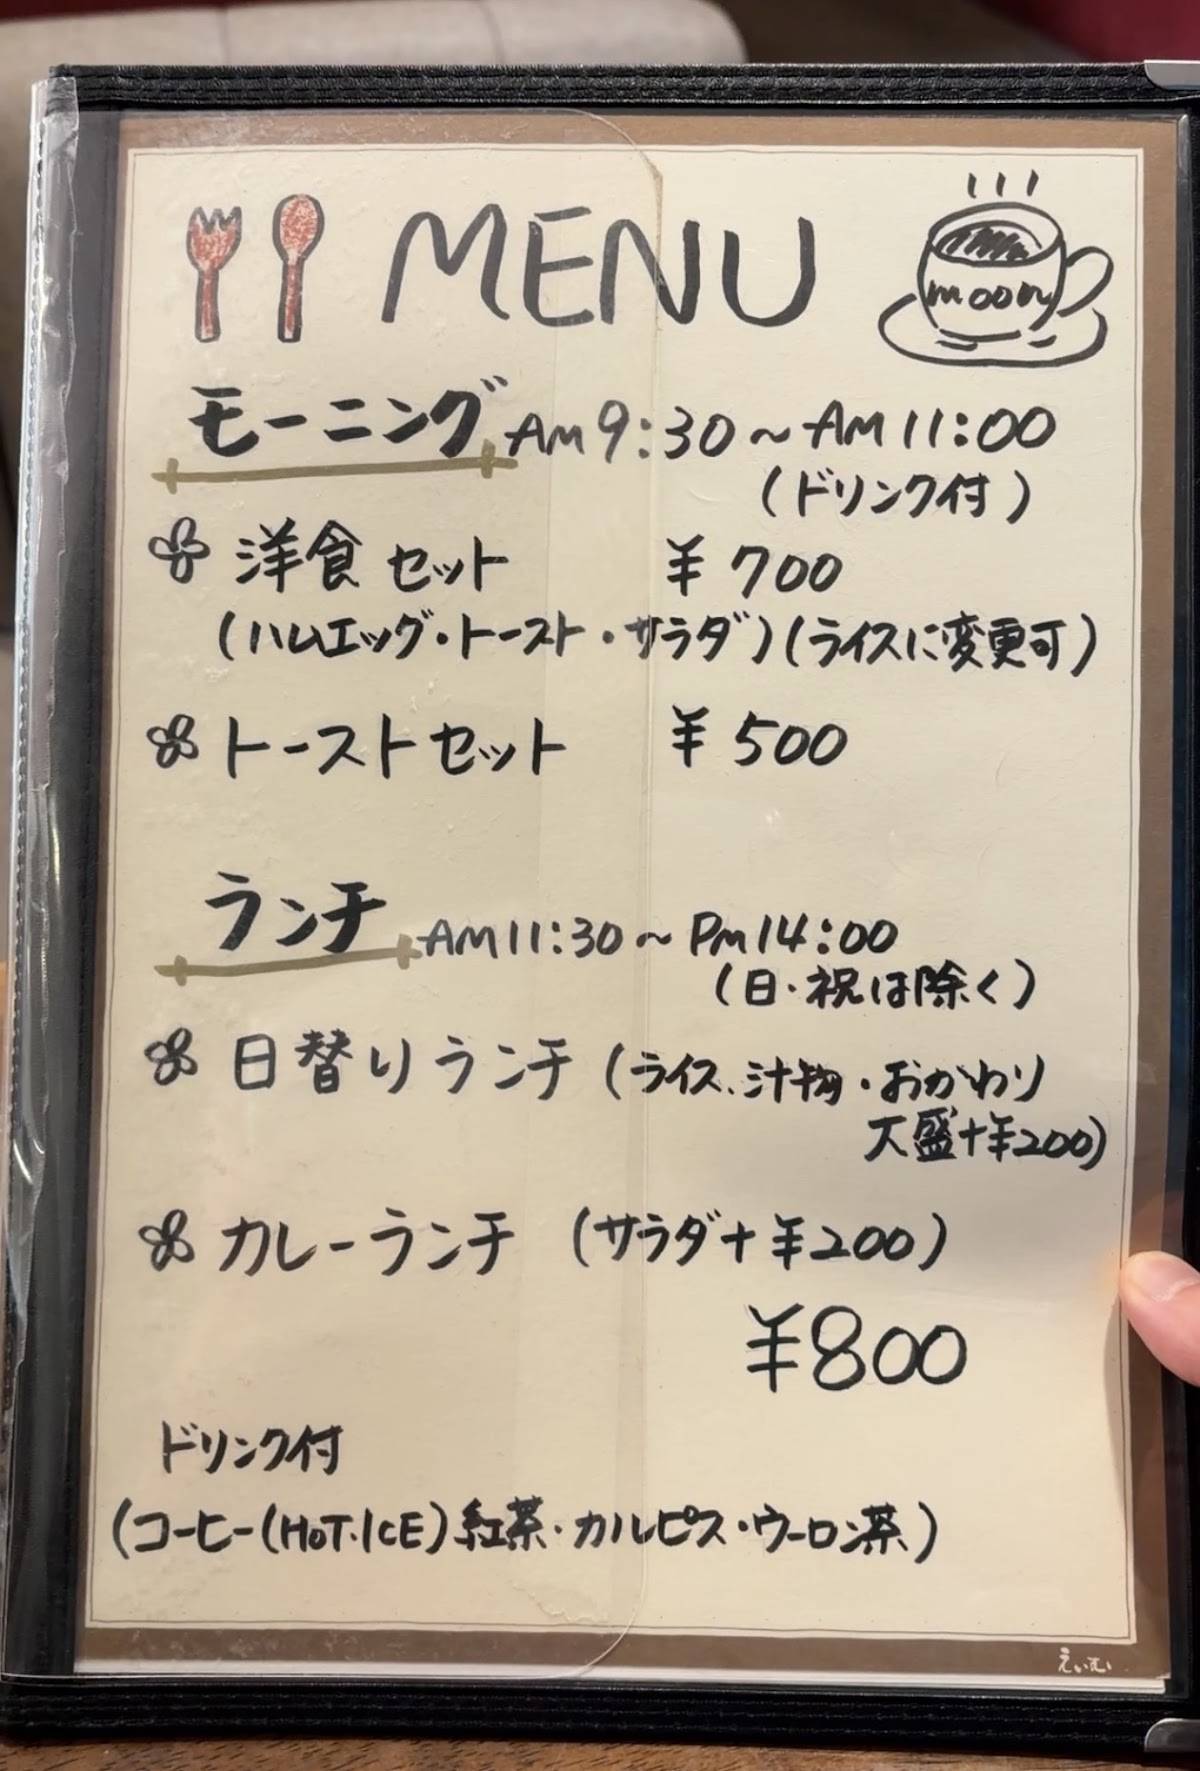 MENU
moon
モーニング AM 9:30 ~ AM 11:00
(ドリンク付)
洋食セット ¥700
(ハムエッグ・トースト・サラダ)(ライスに変更可)
トーストセット ¥500
ランチ AM11:30 ~ PM14:00
(日・祝は除く)
日替りランチ (ライス、汁物・おかわり
大盛+¥200)
カレーランチ (サラダ+¥200)
¥800
ドリンク付
(コーヒー(HOT・ICE)紅茶・カルピス・ウーロン茶)
えいむ